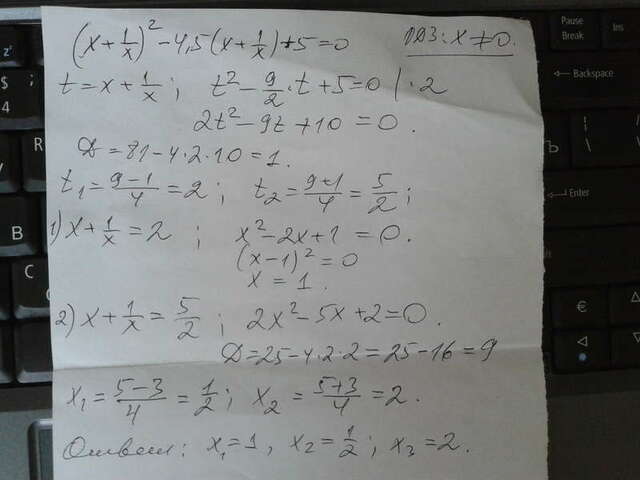 (x+1/x)² - 4,5(x+1/x)+5=0 ОДЗ: x≠0.
t=x+1/x; t²-9/2·t+5=0 |·2
2t²-9t+10=0.
D=81-4·2·10=1.
t₁=(9-1)/4=2; t₂=(9+1)/4=5/2;
1) x+1/x=2; x²-2x+1=0.
(x-1)²=0
x=1.
2) x+1/x=5/2; 2x²-5x+2=0.
D=25-4·2·2=25-16=9
x₁=(5-3)/4=1/2; x₂=(5+3)/4=2.
Ответ: x₁=1, x₂=1/2; x₃=2.
Pause
Break
Ins
Backspace
Enter
z'
$
4
R
F
B
Ъ
\
€